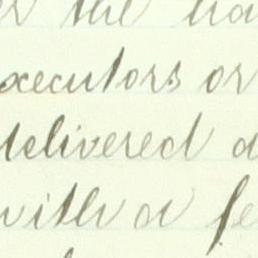 the
executors or
delivered
with a